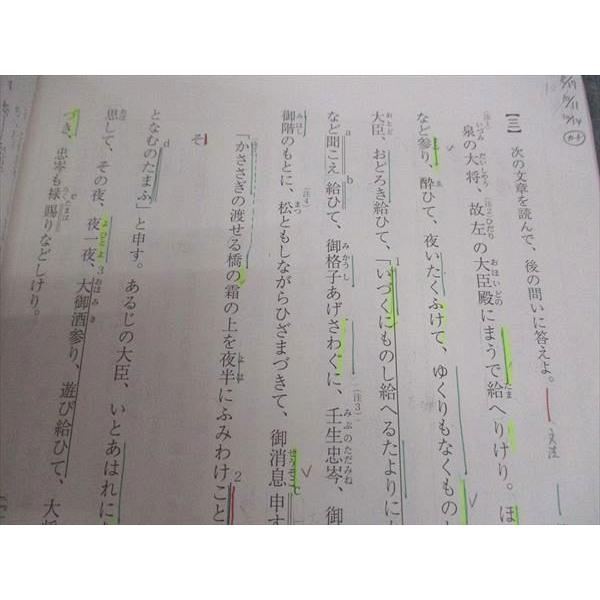 【三】 次の文章を読んで、後の問いに答えよ。
泉の大将、故左の大臣殿にまうで給へりけり。ほ
など参り、酔ひて、夜いたくふけて、ゆくりもなくもの
大臣、おどろき給ひて、「いづくにものし給へるたよりに
など聞こえ給ひて、御格子あげさわぐに、壬生忠岑、御
御階のもとに、松ともしながらひざまづきて、御消息申す
「かささぎの渡せる橋の霜の上を夜半にふみわけこと
そ
となむのたまふ」と申す。あるじの大臣、いとあはれに
思して、その夜、夜一夜、大御酒参り、遊び給ひて、大
づき、忠岑も禄賜りなどしけり。
文法